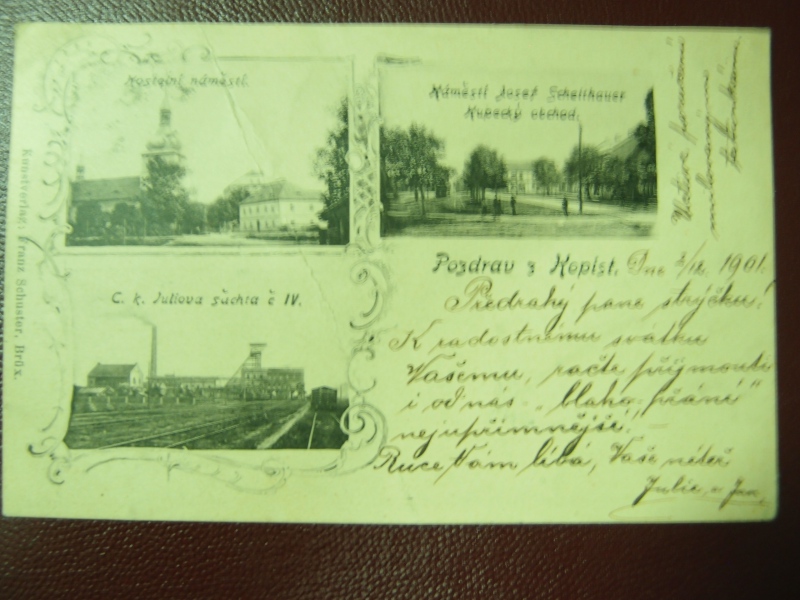 Kostelní náměstí.
Náměstí Josef Schellhauer
Kupecký obchod.
C. k. Juliova šachta č IV.
Kunstverlag: Franz Schuster, Brüx.
Pozdrav z Kopist. Dne 2/12. 1901.
Předrahý pane strýčku!
K radostnému svátku
Vašemu, račte přijmouti
i od nás "blaho-přání"
nejupřímnější!
Ruce Vám líbá, Vaše neteř
Julie a Jan